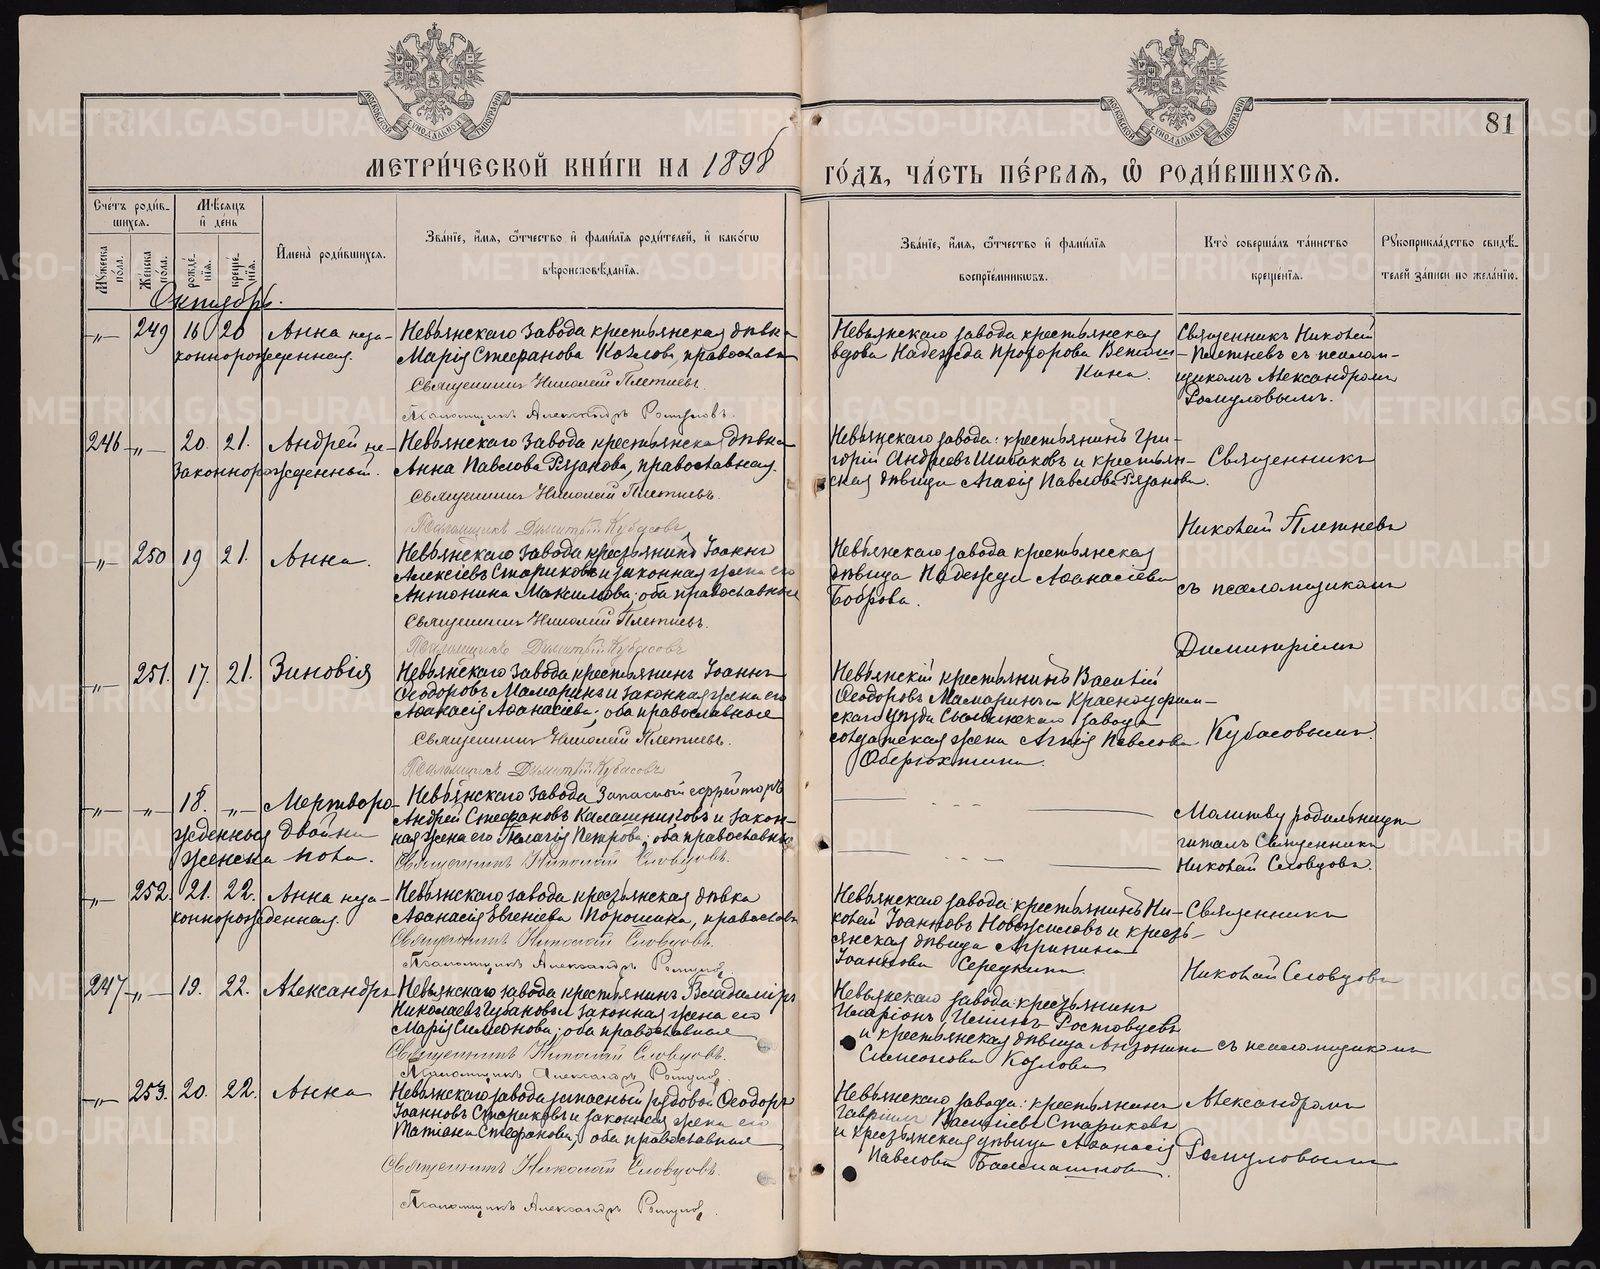 МЕТРИЧЕСКОЙ КНИГИ НА 1898
ГОДЪ, ЧАСТЬ ПЕРВАЯ, Ѡ РОДИВШИХСЯ.
81
Счетъ родив-
шихся.
Мѣсяцъ
и день
Мужеска пола.
Женска пола.
рожде-
нія.
креще-
нія.
Имена родившихся.
Званіе, имя, ѿчество и фамилія родителей, и какогѡ
вѣроисповѣданія.
Званіе, имя, ѿчество и фамилія
воспріемникѡвъ.
Кто совершалъ таинство
крещенія.
Рукоприкладство свидѣ-
телей записи по желанію.
Октябрь.
-„- 249 16 20 Анна неза-
коннорожденная.
Невьянскаго завода крестьянская дѣвка
Марія Стефанова Козлова, православн
Священникъ Николай Плетневъ.
Псаломщикъ Александръ Ромуловъ.
Невьянскаго завода крестьянская
вдова Надежда Прохорова Ветош-
кина.
Священникъ Николай
Плетневъ съ псалом-
щикомъ Александромъ
Ромуловымъ.
246 -„- 20. 21. Андрей не-
законнорожденный.
Невьянскаго завода крестьянская дѣвка
Анна Павлова Рязанова, православная.
Священникъ Николай Плетневъ.
Псаломщикъ Димитрій Кубасовъ
Невьянскаго завода: крестьянинъ Гри-
горій Андреевъ Шибаковъ и крестьян-
ская дѣвица Агафія Павлова Рязанова.
Священникъ
Николай Плетневъ
-„- 250 19 21. Анна.
Невьянскаго завода крестьянинъ Іоаннъ
Алексіевъ Стариковъ и законная жена его
Антонина Максимова; оба православное
Священникъ Николай Плетневъ.
Псаломщикъ Димитрій Кубасовъ
Невьянскаго завода крестьянская
дѣвица Надежда Аѳанасіева
Боброва.
съ псаломщикомъ
Димитріемъ
-„- 251. 17. 21. Зиновія
Невьянскаго завода крестьянинъ Іоаннъ
Ѳеодоровъ Мамаринъ и законная жена его
Аѳанасія Аѳанасіева; оба православное
Священникъ Николай Плетневъ.
Псаломщикъ Димитрій Кубасовъ
Невьянскій крестьянинъ Василій
Ѳеодоровъ Мамаринъ и Красноуфим-
скаго уѣзда завода
солдатская жена Агнія Павлова
Оберюхтина.
Кубасовымъ.
-„- -„- 18. -„- Мертворо-
жденныя двойни
женска пола.
Невьянскаго завода запасной ефрейторъ
Андрей Стефановъ Калашниковъ и закон-
ная жена его Пелагія Петрова; оба православные
Священникъ Николай Словцовъ.
Молитву родильницѣ
читалъ Священникъ
Николай Словцовъ.
-„- 252. 21. 22. Анна неза-
коннорожденная.
Невьянскаго завода крестьянская дѣвка
Аѳанасія Евгеніева Порошина, православн
Священникъ Николай Словцовъ.
Псаломщикъ Александръ Ромулов
Невьянскаго завода: крестьянинъ Ни-
колай Іоанновъ Новожиловъ и кресть-
янская дѣвица Агрипина
Іоаннова Середкина.
Священникъ
Николай Словцовъ
247 -„- 19. 22. Александръ
Невьянскаго завода крестьянинъ Владиміръ
Николаевъ Чубановъ и законная жена его
Марія Симеонова; оба православная
Священникъ Николай Словцовъ.
Псаломщикъ Александръ Ромулов
Невьянскаго завода: крестьянинъ
Иларіонъ Ростовцевъ
и крестьянская дѣвица Антонина
Симеонова Козлова
съ псаломщикомъ
-„- 253. 20. 22. Анна
Невьянскаго завода запасный рядовой Ѳеодоръ
Іоанновъ Стариковъ и законная жена его
Татіана Стефанова; оба православная
Священникъ Николай Словцовъ.
Псаломщикъ Александръ Ромулов.
Невьянскаго завода: крестьянинъ
Гавріилъ Васильевъ Стариковъ
и крестьянская дѣвица Аѳанасія
Павлова
Александромъ
Ромуловымъ
METRIKI.GASO-URAL.RU